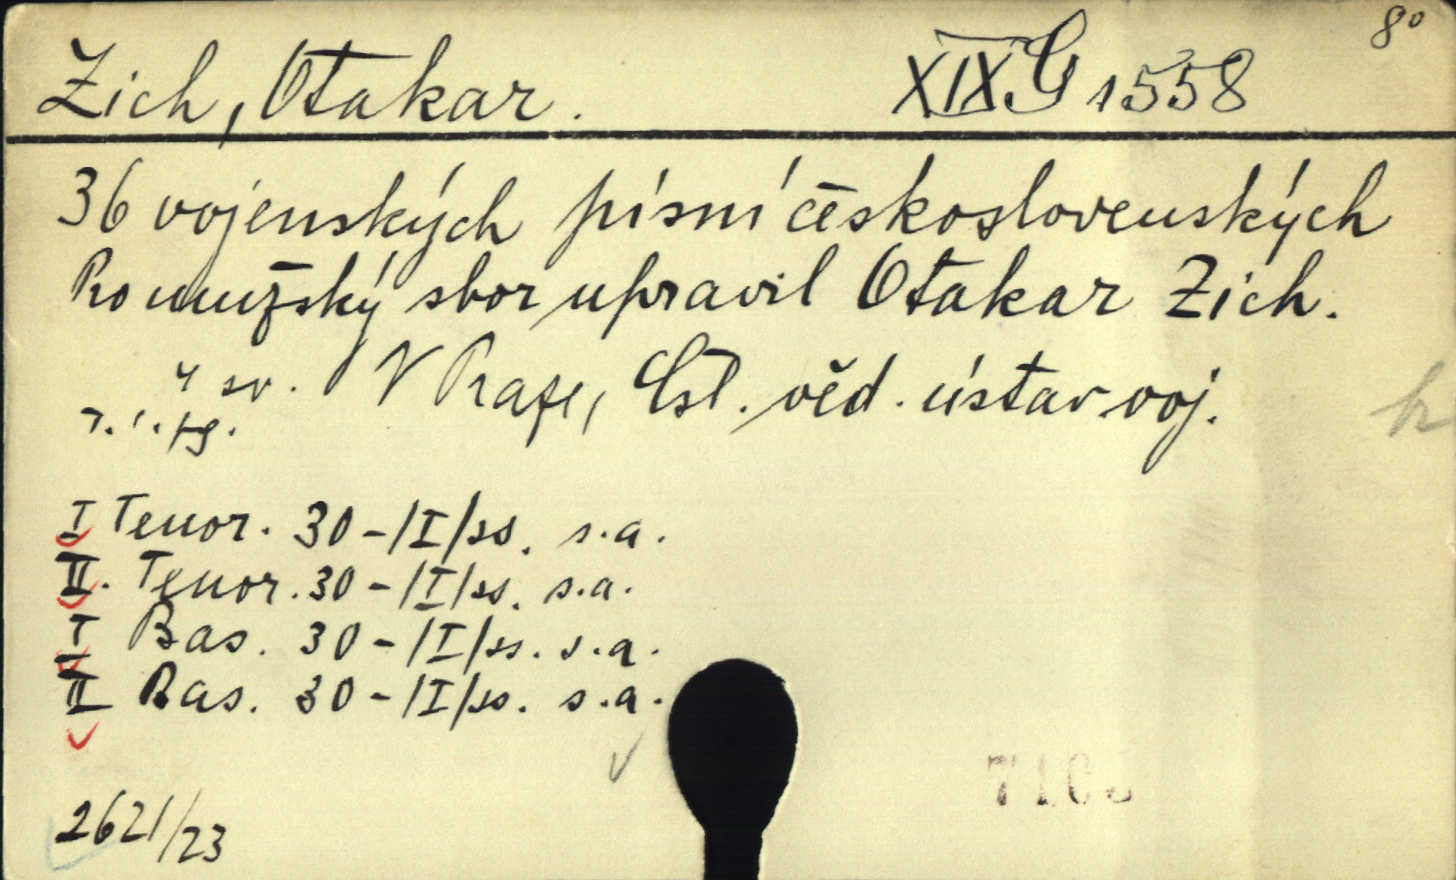 8°
Zich, Otakar. XIX G 1558
36 vojenských písní československých
Pro mužský sbor upravil Otakar Zich.
4 sv. V Praze, Čsl. věd. ústav voj.
h
I Tenor. 30-/I/ss. s.a.
II. Tenor. 30-/I/ss. s.a.
I Bas. 30-/I/ss. s.a.
II Bas. 30-/I/ss. s.a.
2621/23